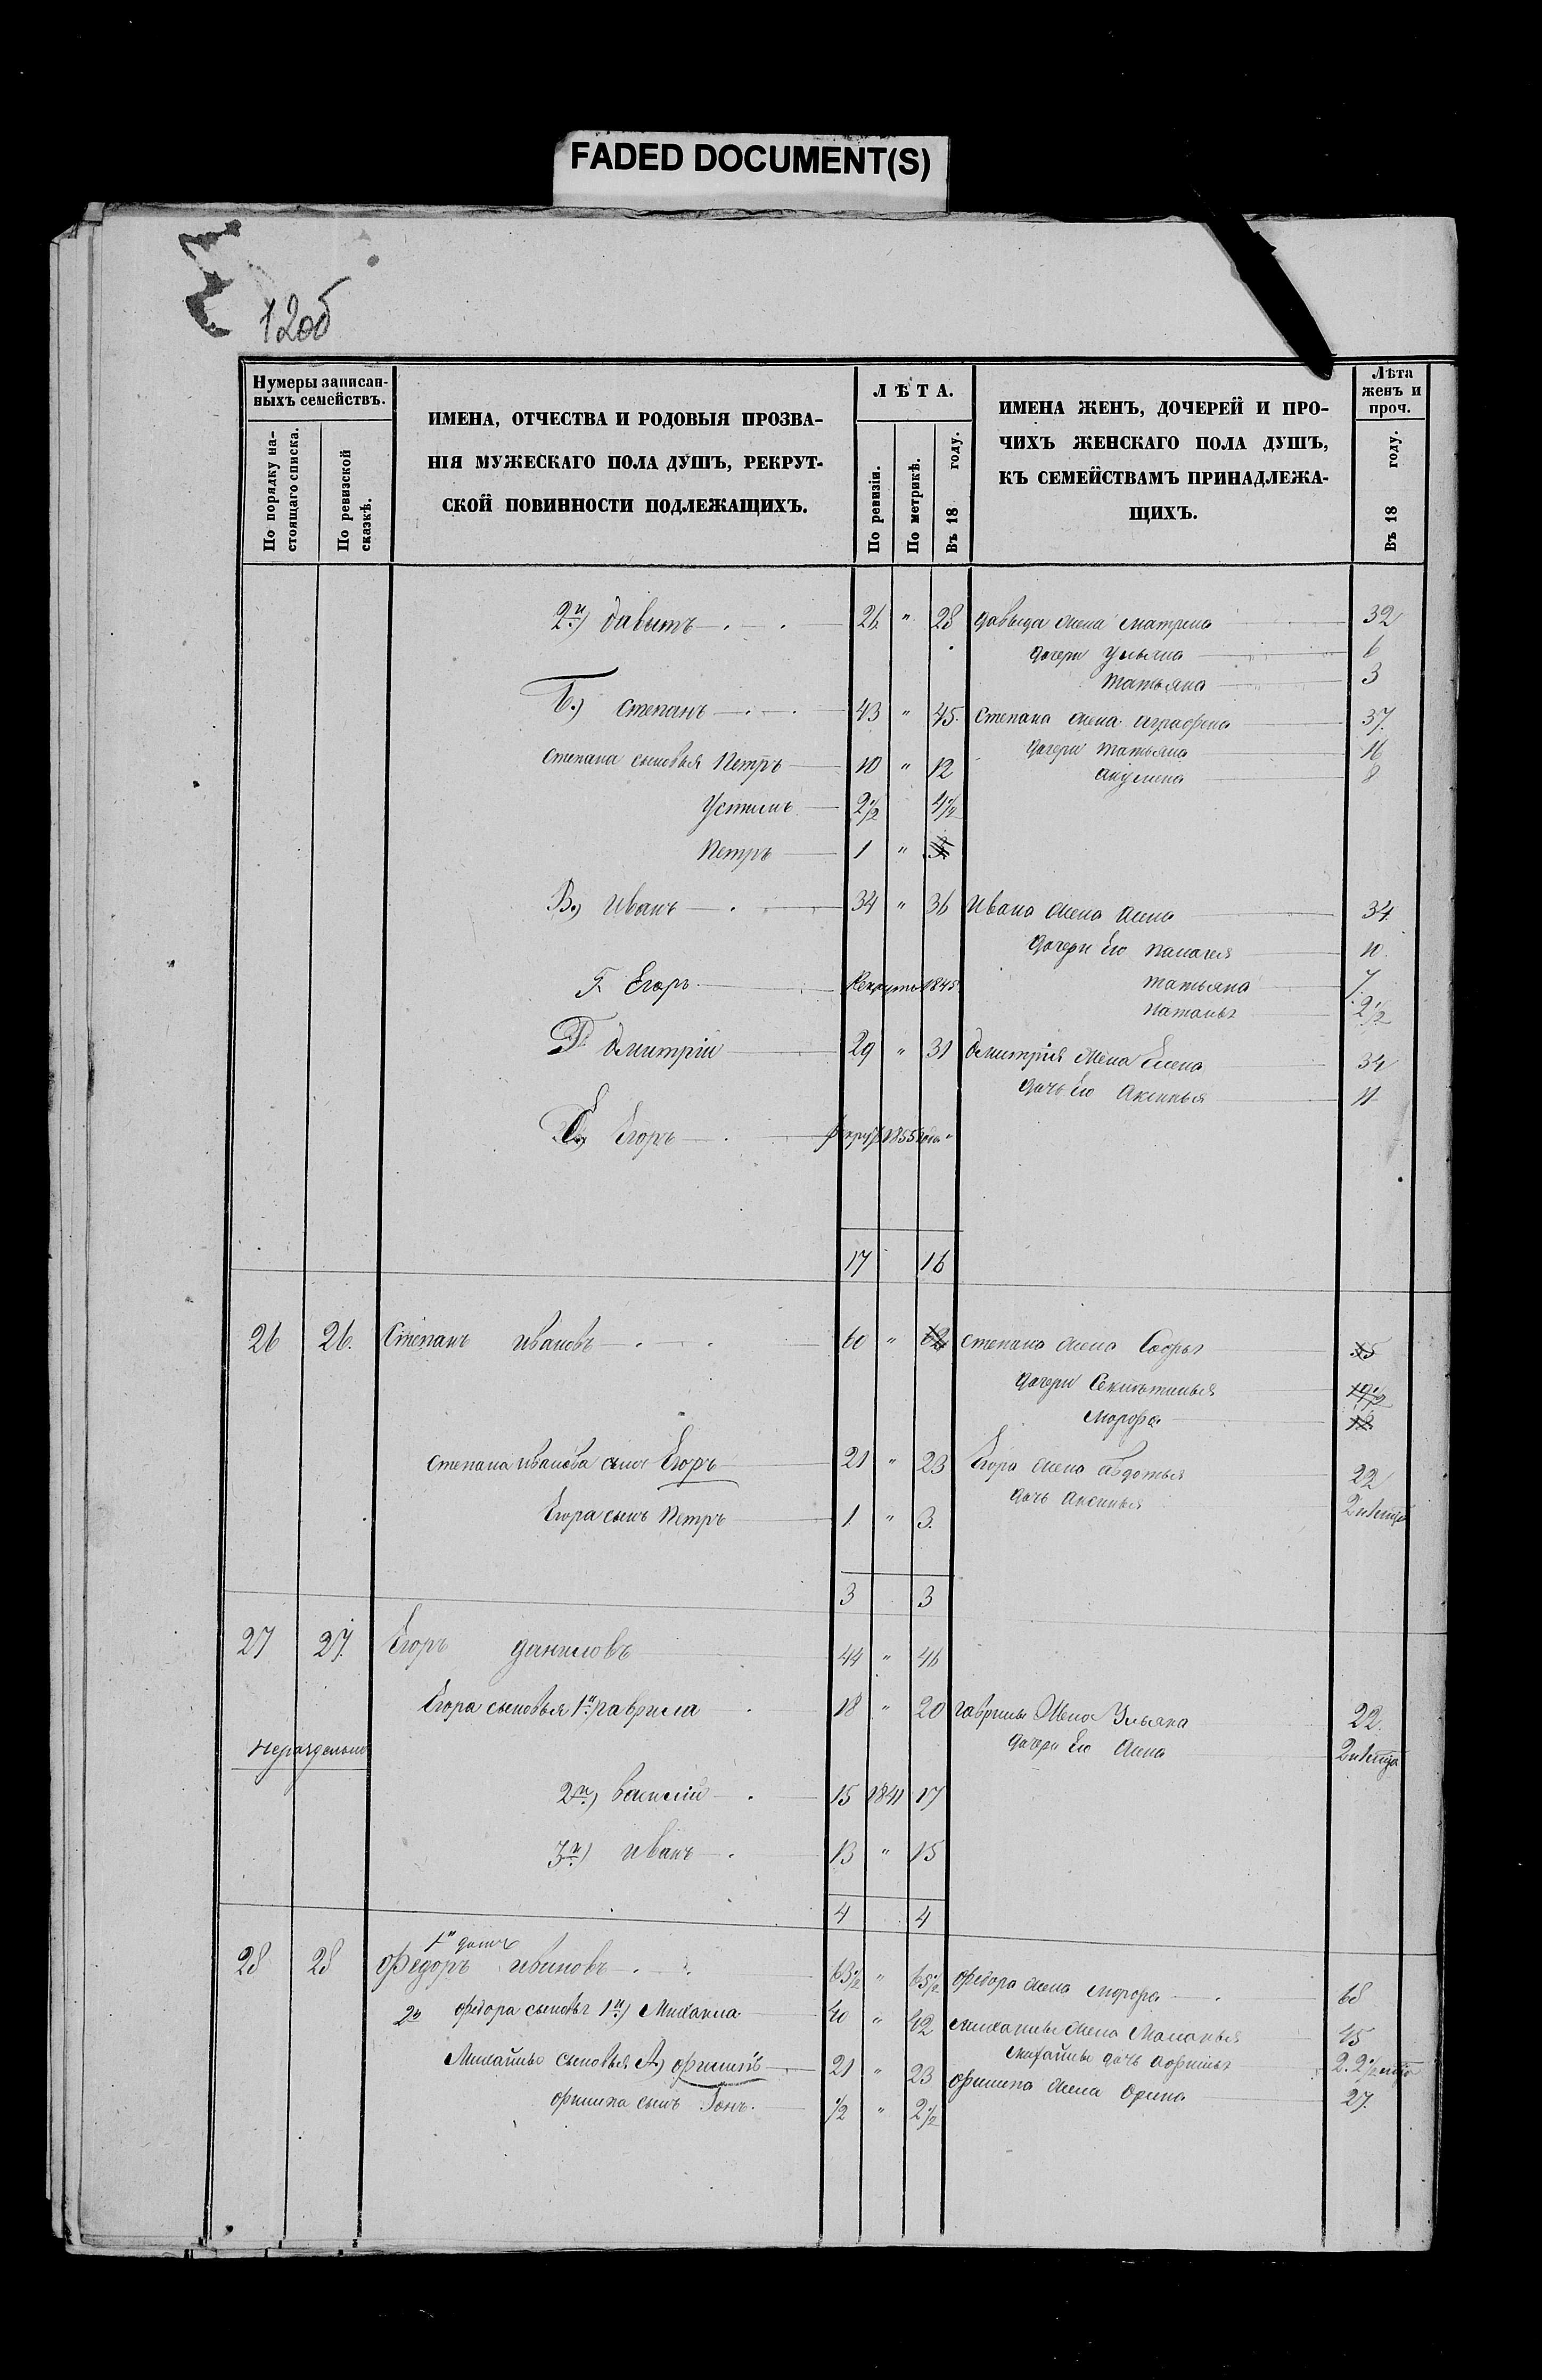 FADED DOCUMENT(S)
12об
Нумеры записан-
ныхъ семействъ.
По порядку на-
стоящаго списка.
По ревизской
сказкѣ.
ИМЕНА, ОТЧЕСТВА И РОДОВЫЯ ПРОЗВА-
НІЯ МУЖЕСКАГО ПОЛА ДУШЪ, РЕКРУТ-
СКОЙ ПОВИННОСТИ ПОДЛЕЖАЩИХЪ.
ЛѢТА.
По ревизіи.
По метрикѣ.
Въ 18 году.
ИМЕНА ЖЕНЪ, ДОЧЕРЕЙ И ПРО-
ЧИХЪ ЖЕНСКАГО ПОЛА ДУШЪ,
КЪ СЕМЕЙСТВАМЪ ПРИНАДЛЕЖА-
ЩИХЪ.
Лѣта
женъ и
проч.
Въ 18 году.
2й) давытъ 26 " 28 давыда жена матрена 32
дочери Ульяна 6
татьяна 3
Б.) степанъ 43 " 45. степана жена аграфена 37.
дочери татьяна 16
степана сыновья Петръ 10 " 12 акулина 8
Устинъ 2½ 4½
Петръ 1 " 3
В.) иванъ 34 " 36 ивана жена анна 34.
дочери Его палагея 10.
Г. Егоръ Рекрутъ 1845 татьяна 7.
наталья 2½
Д. дмитрій 29 " 31 дмитрія жена Елена 34
дочь Его аксинья 11
Е.) Егоръ рекрут 1855 года
17 16
26 26. Степанъ ивановъ 60 " 62 степана жена Софья 55
дочери 19½
Марфа 12
степана иванова сынъ Егоръ 21 " 23 Егора жена авдотья 22
дочь аксинья 2 нѣтъ
Егора сынъ Петръ 1 " 3.
3 3
27 27. Егоръ даниловъ 44 " 46
Егора сыновья 1й) гаврила 18 " 20 гаврилы Жена Ульяна 22.
Нераздельно дочери Его анна
2й) василій 15 1841 17
3й) иванъ 13 " 15
4 4
28 28 Федоръ ивановъ 63½ " 65½ федора жена марфа 68
федора сыновья 1й) Михаила 40 " 42 михайлы жена Маланья 45
Михайлы сыновья А) филипъ 21 " 23 михайлы дочь
филипа жена Орина 27.
филипа сынъ ½ " 2½